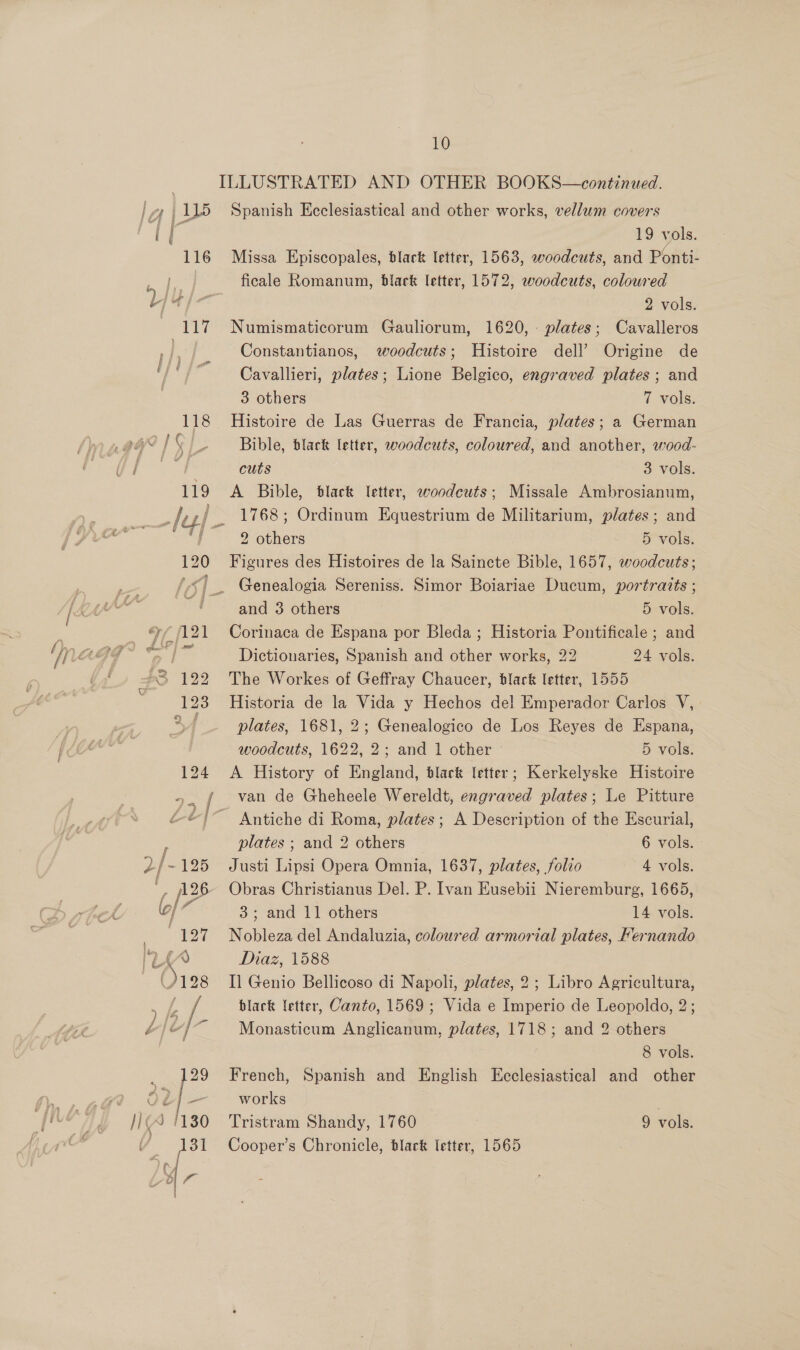 10
ILLUSTRATED AND OTHER BOOKS—continued.
115 Spanish Ecclesiastical and other works, vellum covers
19 vols.
116 Missa Episcopales, black letter, 1563, woodcuts, and Ponti-
ficale Romanum, black letter, 1572, woodcuts, coloured
2 vols.
117 Numismaticorum Gauliorum, 1620, plates; Cavalleros
Constantianos, woodcuts; Histoire dell' Origine de
Cavallieri, plates; Lione Belgico, engraved plates; and
3 others 7 vols.
118 Histoire de Las Guerras de Francia, plates; a German
Bible, black letter, woodcuts, coloured, and another, wood-
cuts 3 vols.
119 A Bible, black letter, woodcuts; Missale Ambrosianum,
1768; Ordinum Equestrium de Militarium, plates; and
2 others 5 vols.
120 Figures des Histoires de la Saincte Bible, 1657, woodcuts;
Genealogia Sereniss. Simor Boiariae Ducum, portraits;
and 3 others 5 vols.
121 Corinaca de Espana por Bleda; Historia Pontificale; and
Dictionaries, Spanish and other works, 22 24 vols.
122 The Workes of Geffray Chaucer, black letter, 1555
123 Historia de la Vida y Hechos del Emperador Carlos V,
plates, 1681, 2; Genealogico de Los Reyes de Espana,
woodcuts, 1622, 2; and 1 other 5 vols.
124 A History of England, black letter; Kerkelyske Histoire
van de Gheheele Wereldt, engraved plates; Le Pitture
Antiche di Roma, plates; A Description of the Escurial,
plates; and 2 others 6 vols.
125 Justi Lipsi Opera Omnia, 1637, plates, folio 4 vols.
126 Obras Christianus Del. P. Ivan Eusebii Nieremburg, 1665,
3; and 11 others 14 vols.
127 Nobleza del Andaluzia, coloured armorial plates, Fernando
Diaz, 1588
128 Il Genio Bellicoso di Napoli, plates, 2; Libro Agricultura,
black letter, Canto, 1569; Vida e Imperio de Leopoldo, 2;
Monasticum Anglicanum, plates, 1718; and 2 others
8 vols.
129 French, Spanish and English Ecclesiastical and other
works
130 Tristram Shandy, 1760 9 vols.
131 Cooper's Chronicle, black letter, 1565